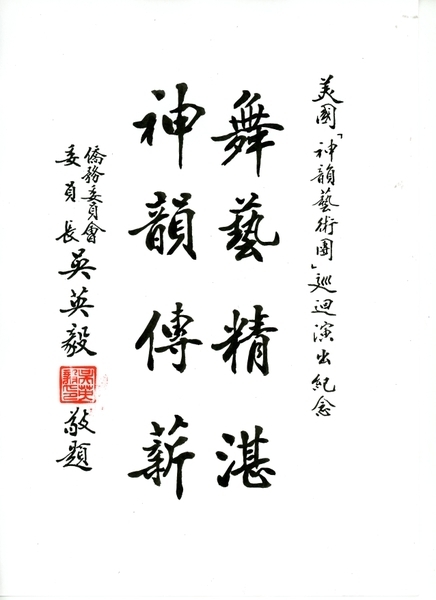 美國「神韻藝術團」巡迴演出紀念
舞藝精湛
神韻傳薪
僑務委員會
委員長吳英毅
敬題